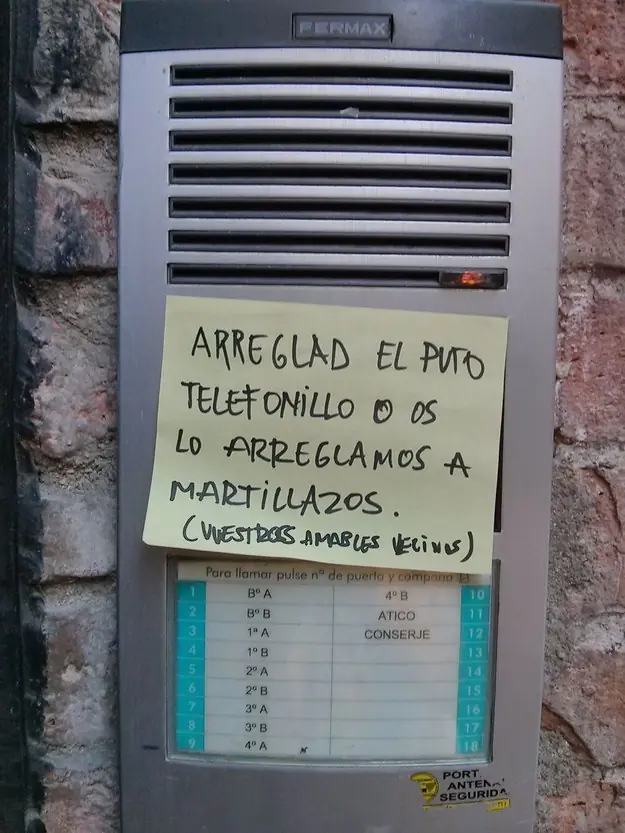 FERMAX
ARREGLAD EL PUTO
TELEFONILLO O OS
LO ARREGLAMOS A
MARTILLAZOS.
(VUESTROS AMABLES VECINOS)
Para llamar pulse nº de puerta y campana
1 Bº A 4º B 10
2 Bº B ATICO 11
3 1ª A CONSERJE 12
4 1º B 13
5 2º A 14
6 2º B 15
7 3º A 16
8 3º B 17
9 4º A 18
PORT.
ANTEN
SEGURIDA